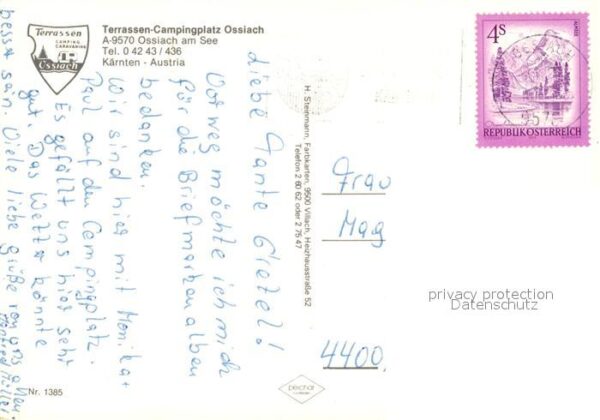 Terrassen
CAMPING
CARAVANING
Ossiach
Terrassen-Campingplatz Ossiach
A-9570 Ossiach am See
Tel. 0 42 43 / 436
Kärnten - Austria
Liebe Tante Gretel!
Vorweg möchte ich mich
für die Briefmarkenalben
bedanken.
Wir sind hier mit Monika +
Paul auf den Campingplatz.
Es gefällt uns hier sehr
gut. Das Wetter könnte
besser sein. Viele liebe Grüße von uns allen
H. Steinmann, Farbkarten, 9500 Villach, Heizhausstraße 52
Telefon 2 60 62 oder 2 75 47
4S
ALMSEE
REPUBLIK ÖSTERREICH
957
Frau
Mag
4400
privacy protection
Datenschutz
Nr. 1385